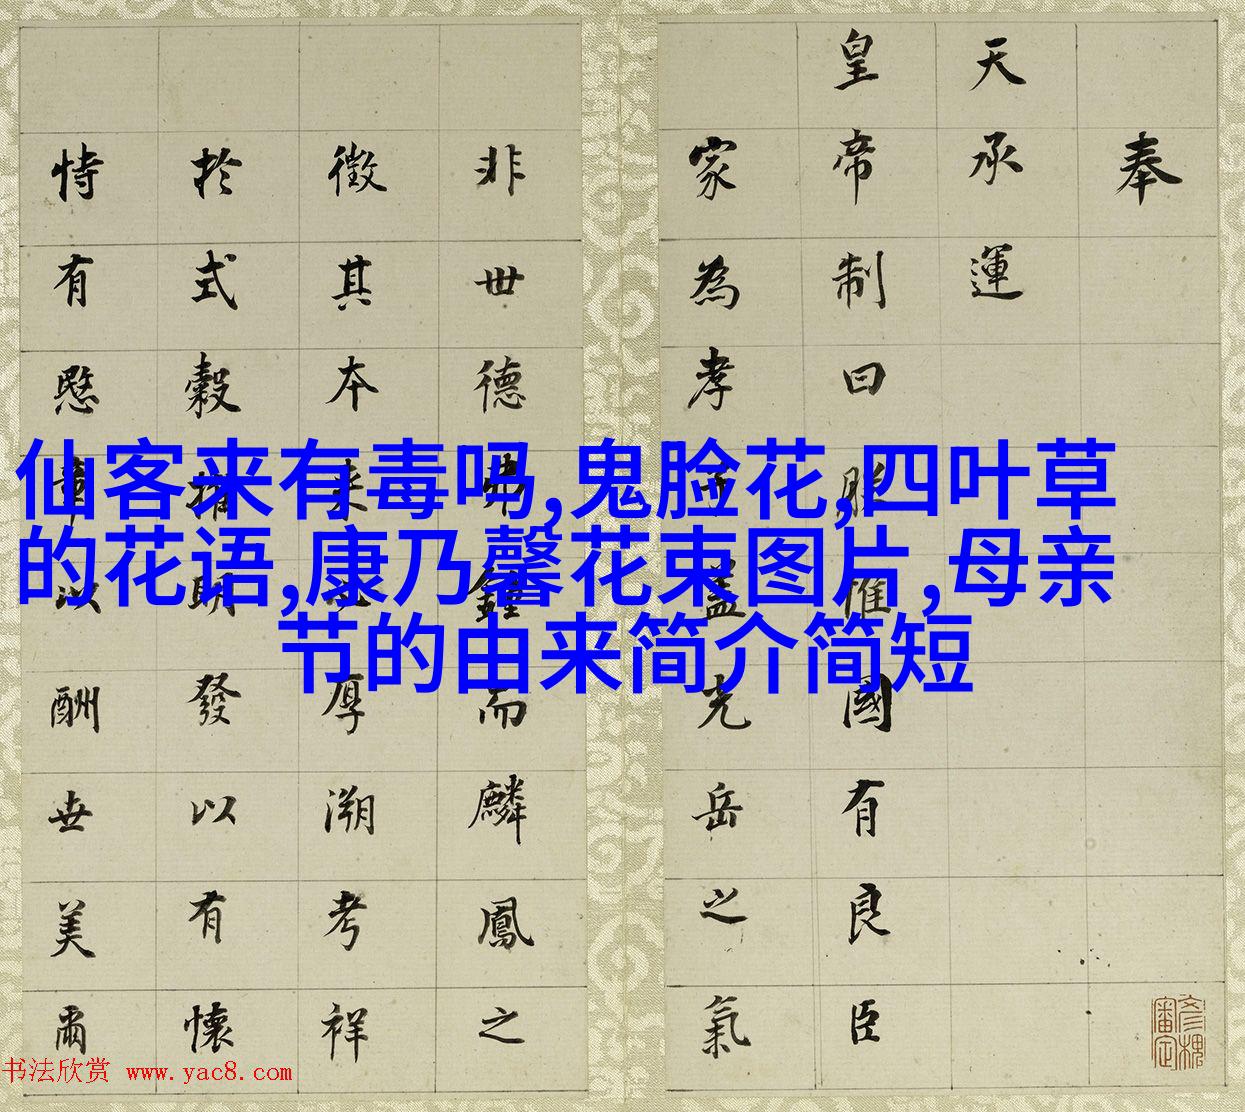 奉
天承運
皇帝制曰朕惟國有良臣
家為孝蓋光岳之氣
非世德弗鍾而麟鳳之
徵其本来厚溯考祥
於式穀明發以有懷
恃有愍章以酬世美爾
仙客来有毒吗,鬼脸花,四叶草
的花语,康乃馨花束图片,母亲
节的由来简介简短
书法欣赏 www.yac8.com